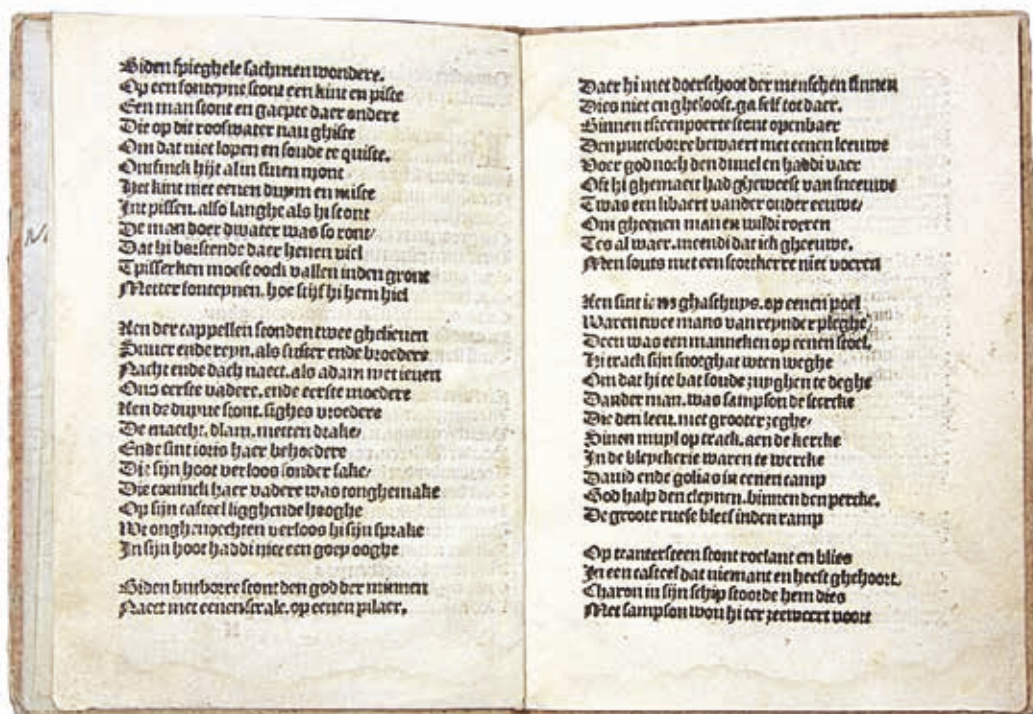 Biden spieghele sachmen wondere.
Op een fonteyne stont een kint en piste
Een man stont en gaepte daer ondere
Die op dit rooswater nau ghiste
Om dat niet lopen en soude te quiste.
Ontfinck hijt al in sinen mont
Het kint met eenen duym en miste
Int pissen. also langhe als hi stont
De man doer dwater was so ront/
Dat hi berstende daer henen viel
Tpisserken moest oock vallen inden gront
Metter fonteynen. hoe stijf hi hem hiel
Aen der cappellen stonden twee ghelieven
Suuer ende reyn. als suster ende broedere
Nacht ende dach naect. als adam met ieven
Ons eerste vadere. ende eerste moedere
Aen de duyne stont. sighes vroedere
De maecht. dlam. metten drake/
Ende sint ioris haer behoedere
Die sijn hoot verloos sonder sake/
Die coninck haer vadere was tonghemake
Op sijn casteel ligghende hooghe
Met onghenoechten verloos hi sijn sprake
In sijn hoot haddi niet een goey ooghe
Biden butborre stont den god der minnen
Naect met eenen strale. op eenen pilaer,
Daer hi met doerschoot der menschen sinnen
Dies niet en gheloost. ga self tot daer.
Binnen tsteenpoerte stont openbaer
Den putteborre bewaert met eenen leeuwe
Voer god noch den duuel en haddi vaer
Oft hi ghemaect had gheweest van sneeuwe
Twas een libaert vander ouder eeuwe/
Om gheenen man en wildi roeren
Tes al waer. meendi dat ich gheeuwe.
Men souts met een stortkerre niet voeren
Aen sint ians ghasthuys. op eenen poel
Waren twee mans van reynder pleghe/
Deen was een manneken op eenen stoel.
Hi track sijn snoeghat wten weghe
Om dat hi te bat soude zuyghen te deghe
Dander man. was sampson de stercke
Die den leeu. met grooter zeghe/
Sinen muyl op track. aen de kercke
In de bleyckerie waren te wercke
Dauid ende golias in eenen camp
God halp den cleynen. binnen den percke.
De groote ruese bleef inden ramp
Op cantersteen stont roelant en blies
In een casteel dat niemant en heeft ghehoort.
Charon in sijn schip stoorde hem dies
Met sampson won hi ter zeewert voort